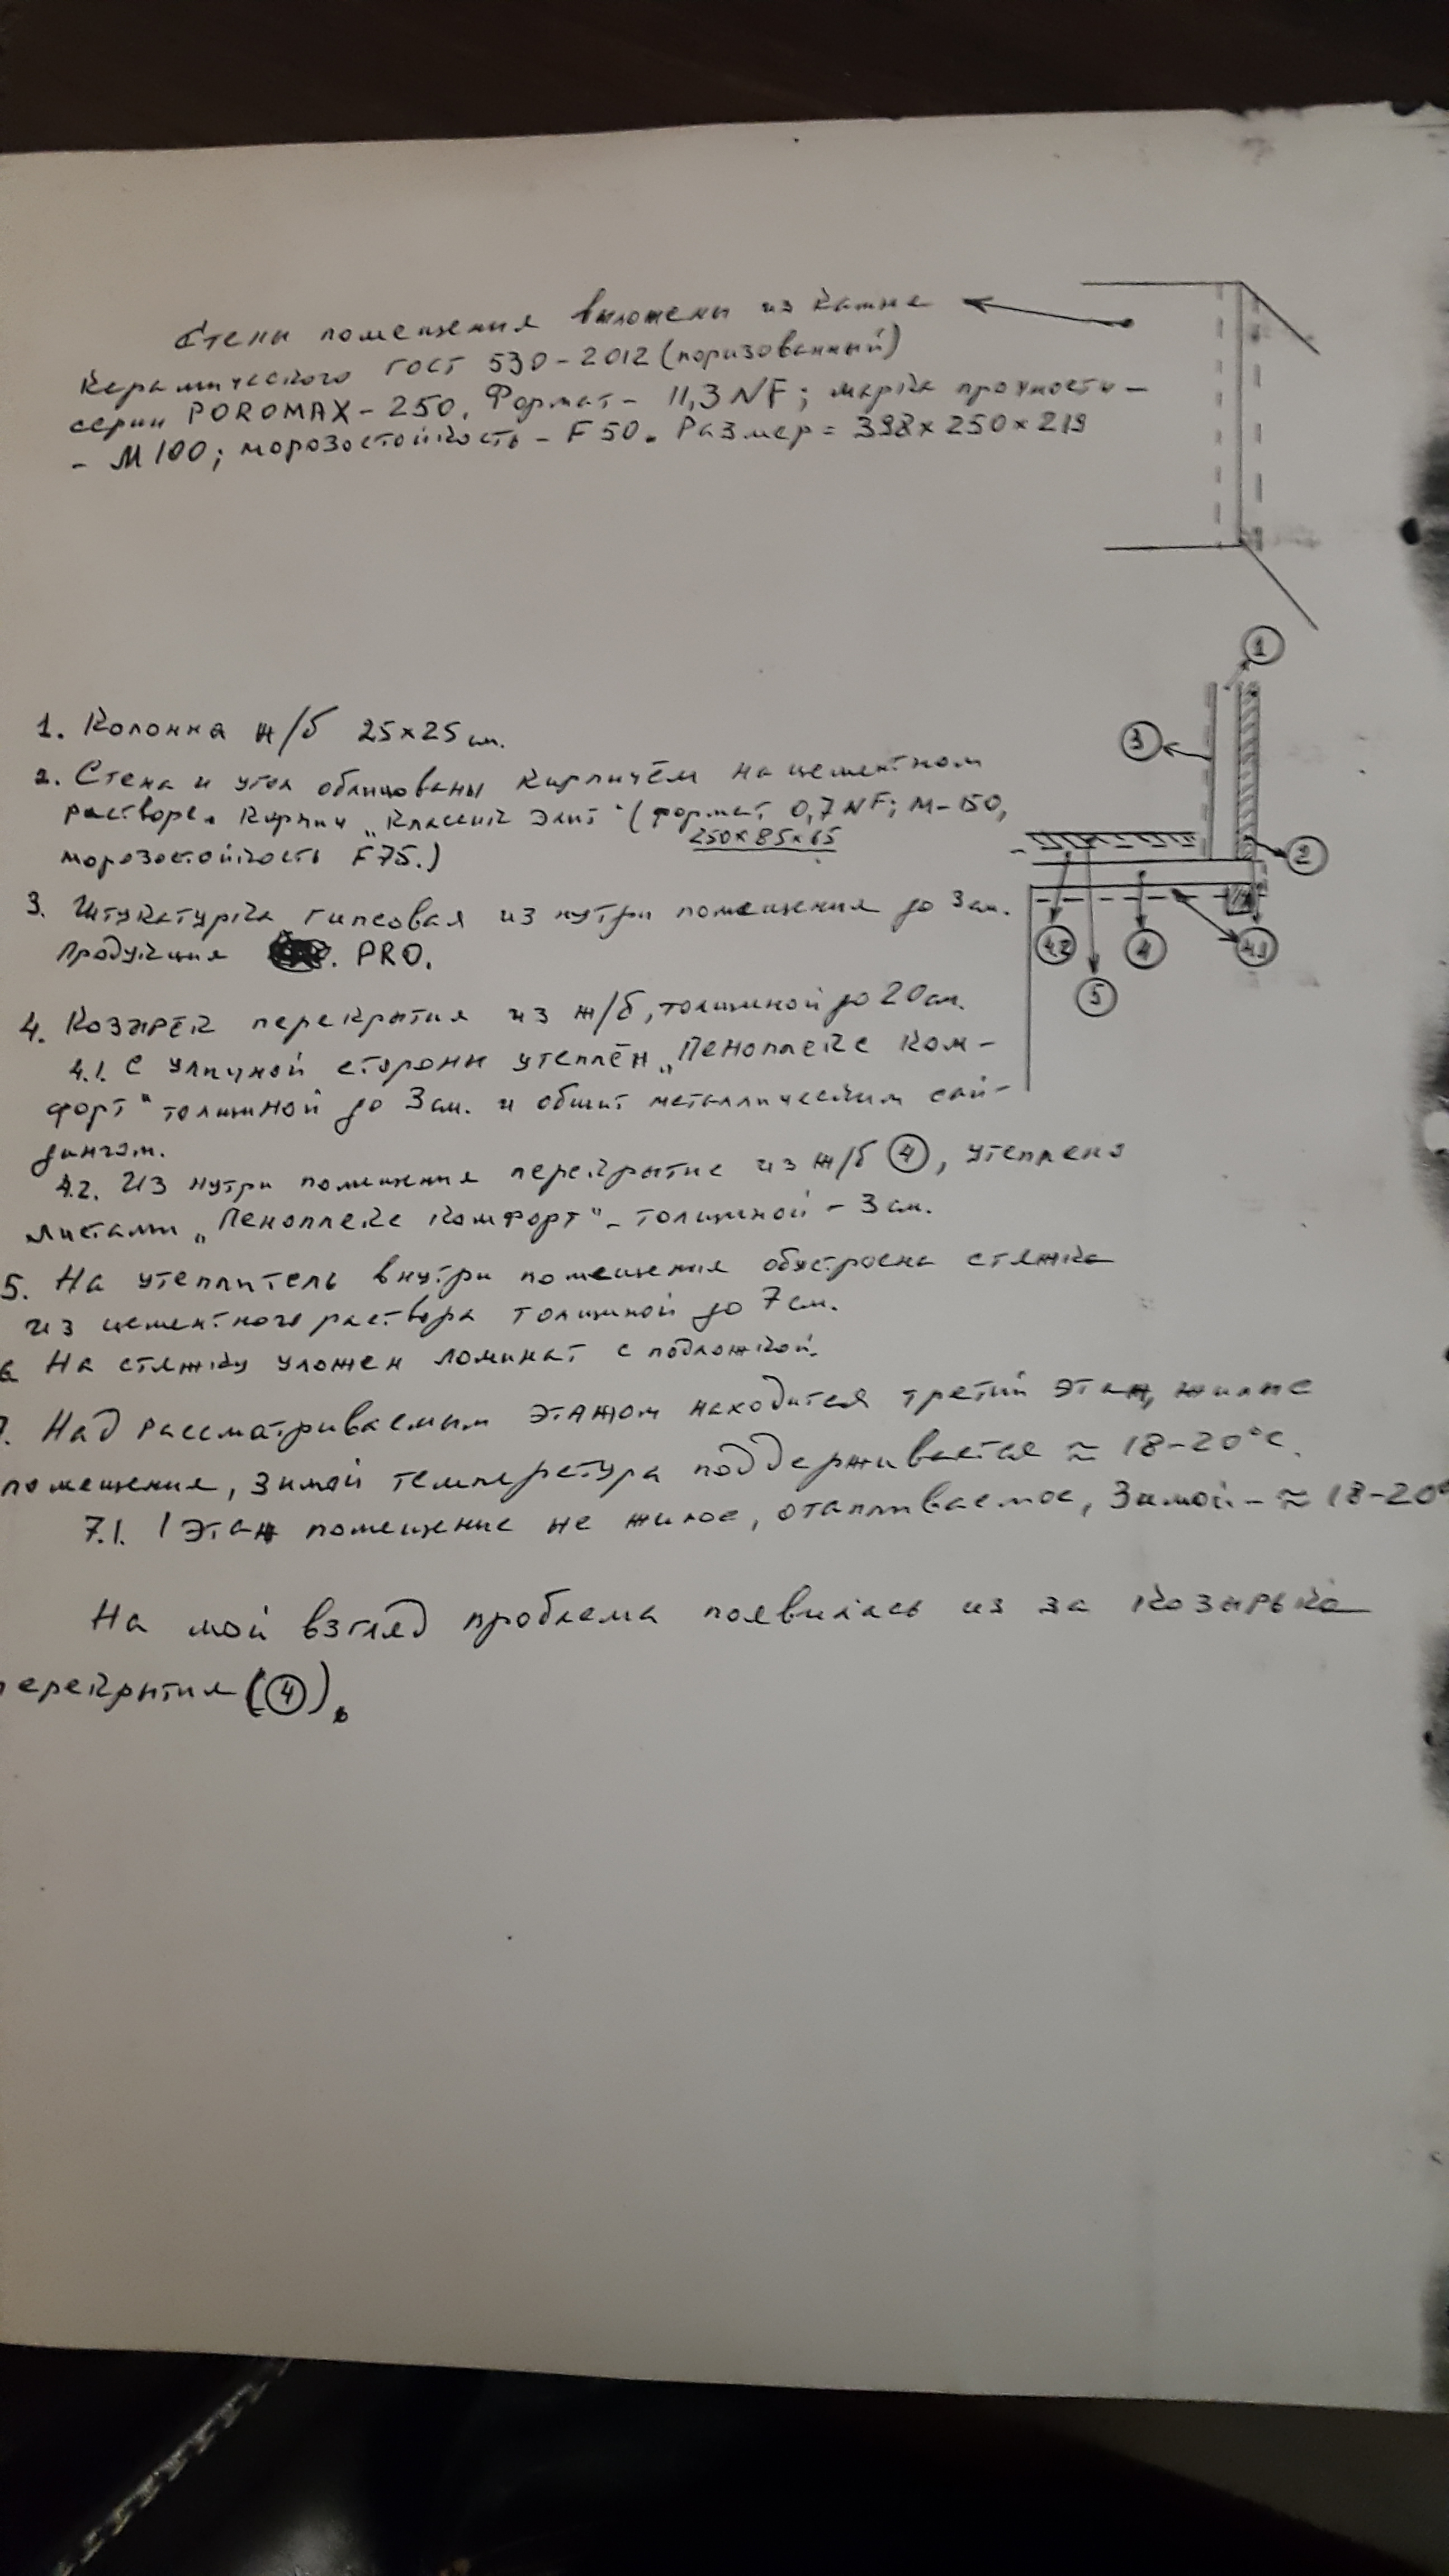 Стены помещения выложены из камня
керамического ГОСТ 530-2012 (поризованный)
серии POROMAX-250. Формат - 11,3 NF; марка прочности -
- М100; морозостойкость - F50. Размер = 398×250×219
1
1. Колонна ж/б 25×25 см.
3
2. Стена и угол облицованы кирпичём на цементном
растворе. Кирпич „Классик Элит" (формат 0,7 NF; М-150,
250×85×65
морозостойкость F75.)
2
3. Штукатурка гипсовая из нутри помещения до 3 см.
Продукция PRO.
4.2 4 4.1
5
4. Козырёк перекрытия из ж/б, толщиной до 20 см.
4.1. С уличной стороны утеплён „Пеноплекс Ком-
форт" толщиной до 3 см. и обшит металлическим сай-
дингом.
4.2. Из нутри помещения перекрытие из ж/б (4), утеплено
листами „Пеноплекс Комфорт" - толщиной - 3 см.
5. На утеплитель внутри помещения обустроена стяжка
из цементного раствора толщиной до 7 см.
6 На стяжку уложен ломинат с подложкой.
7. Над рассматриваемым этажом находится третий этаж, жилые
помещения, зимой температура поддерживается ≈ 18-20°с.
7.1. 1 этаж помещение не жилое, отапливаемое, Зимой - ≈ 18-20°
На мой взгляд проблема появилась из за козырька
перекрытия (4).